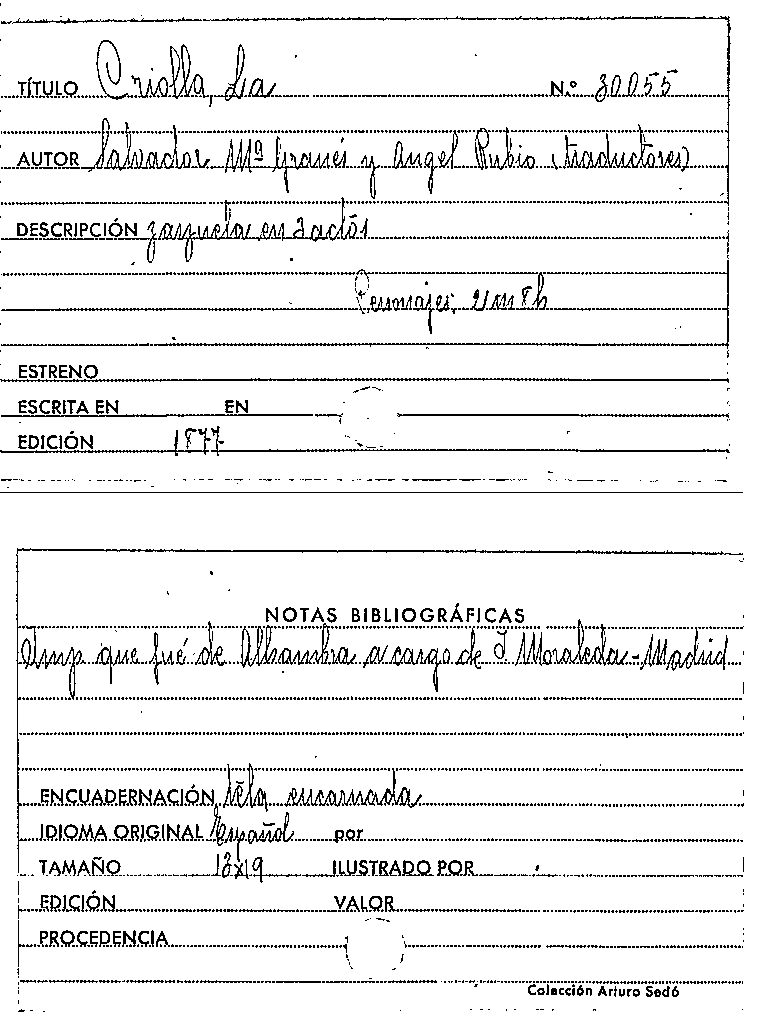 TÍTULO Criolla, La N.º 30055
AUTOR Salvador Mª Granés y Angel Rubio (traductores)
DESCRIPCIÓN zarzuela en 3 actos
Personajes, 2 m 8 h
ESTRENO
ESCRITA EN EN
EDICIÓN 1877
NOTAS BIBLIOGRÁFICAS
Imp que fué de Alhambra a cargo de I Moraleda-Madrid
ENCUADERNACIÓN tela encarnada
IDIOMA ORIGINAL Español por
TAMAÑO 13x19 ILUSTRADO POR
EDICIÓN VALOR
PROCEDENCIA
Colección Arturo Sedó